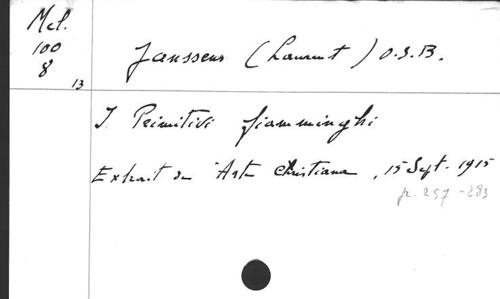 Mel.
100
8
13
Janssens (Laurent) O.S.B.
I Primitivi fiamminghi
Extrait de "Arte Christiana, 15 Sept. 1915
p. 257-283